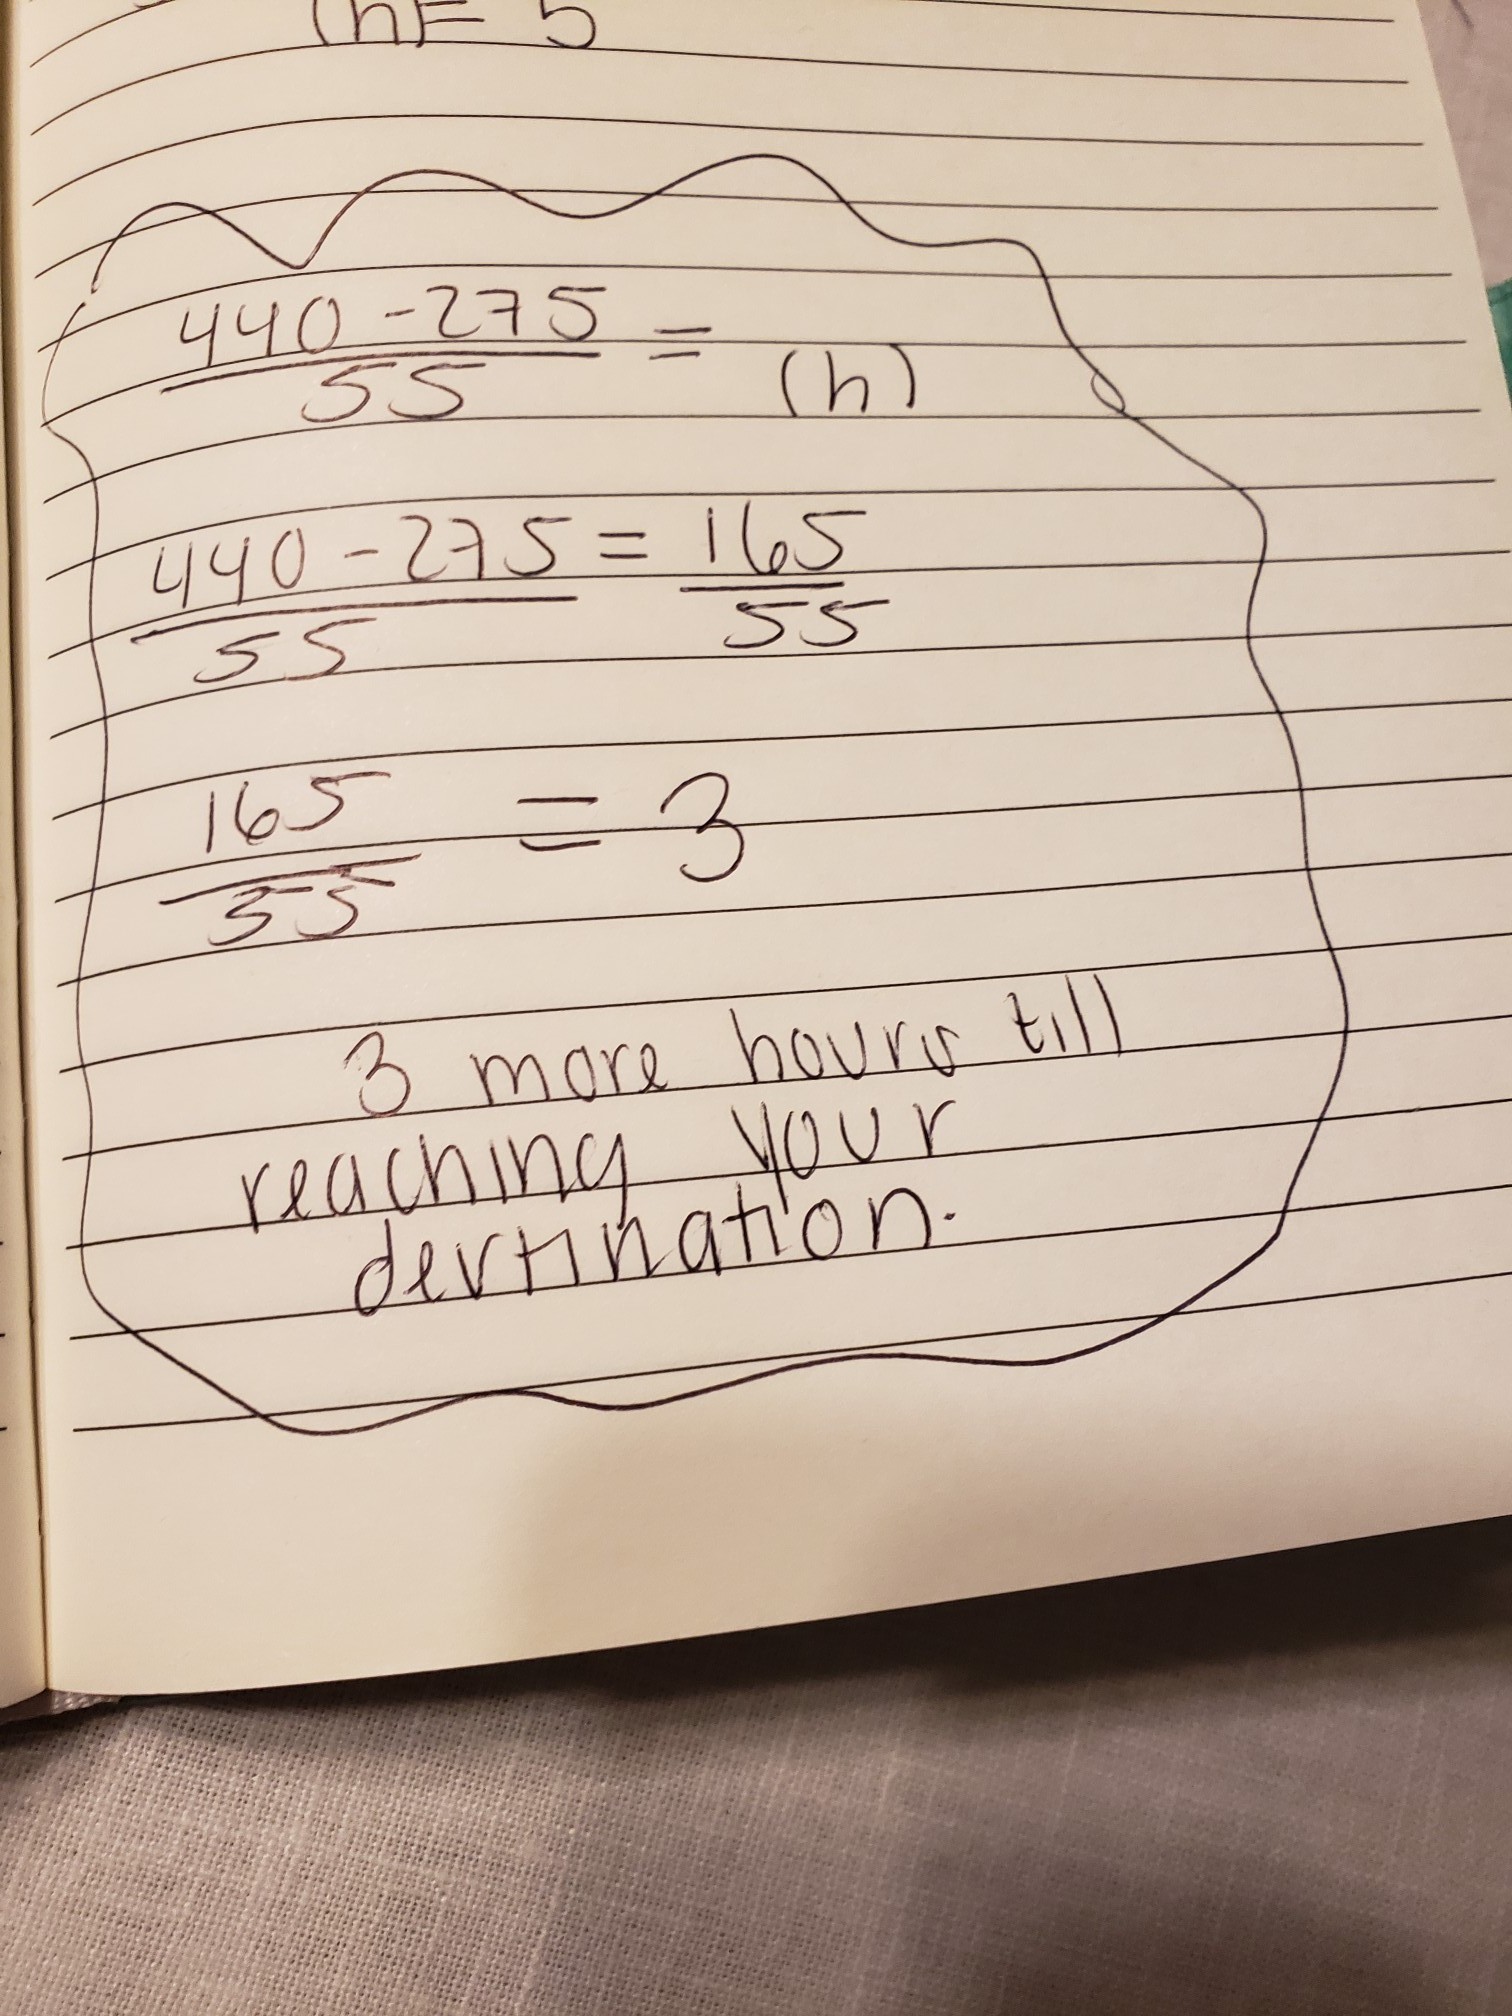 (h)= 5
440 - 275 / 55 = (h)
440 - 275 / 55 = 165 / 55
165 / 55 = 3
3 more hours till
reaching your
destination.